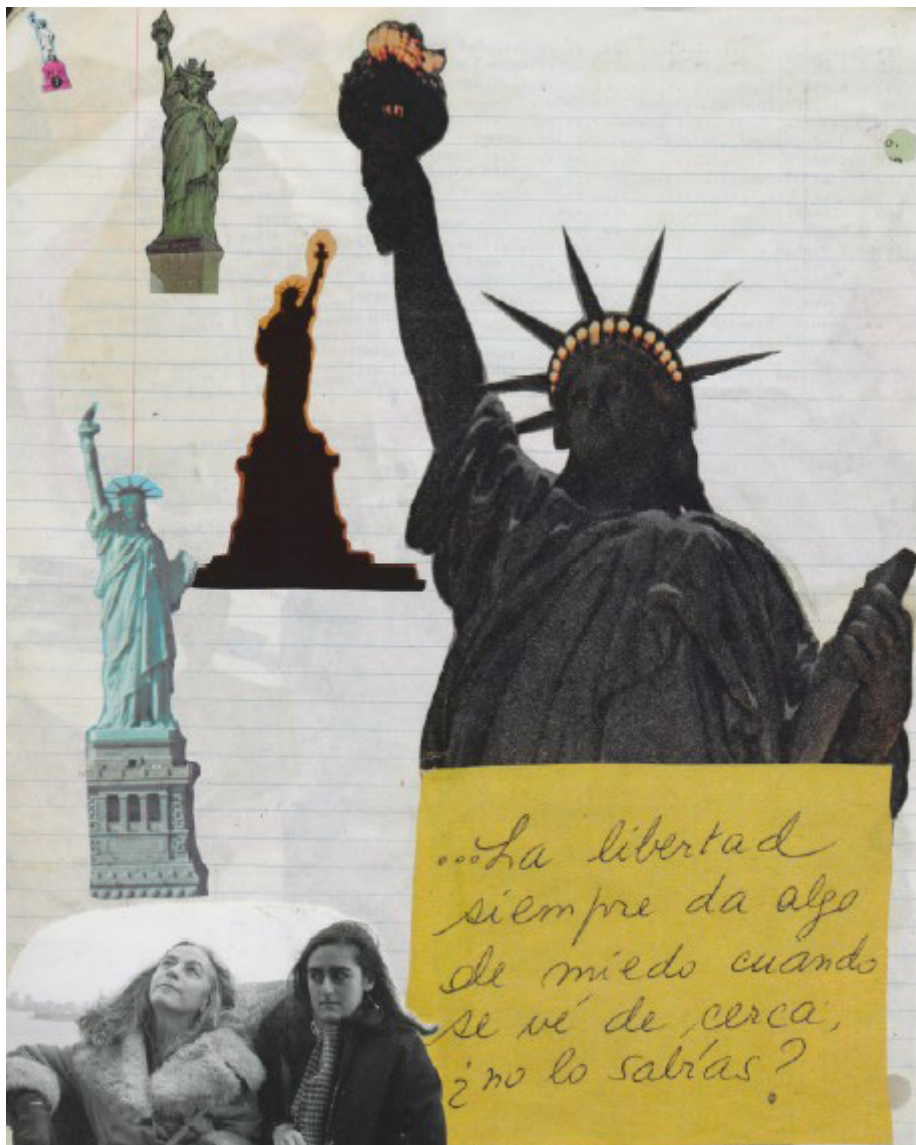 ...La libertad
siempre da algo
de miedo cuando
se vé de cerca,
¿no lo sabías?